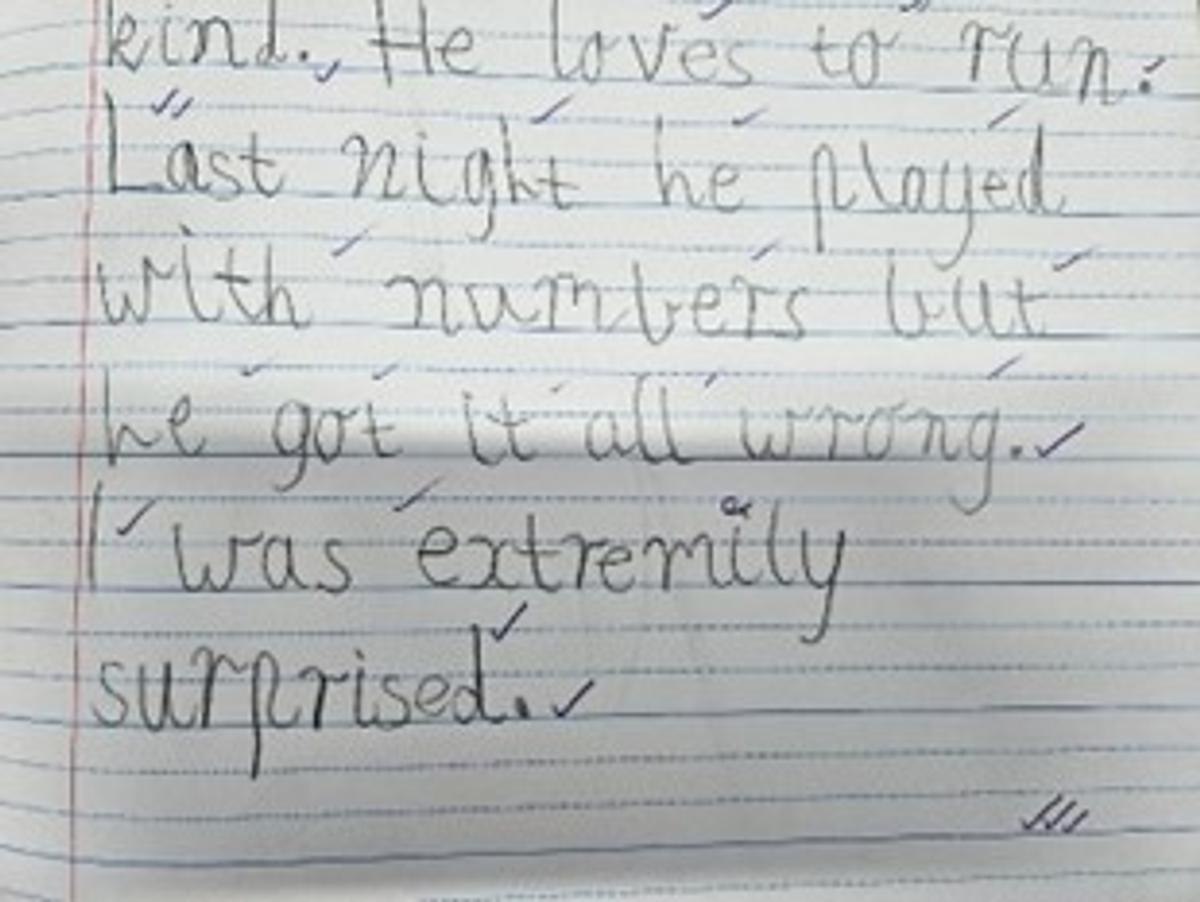 kind. He loves to run.
Last night he played
with numbers but
he got it all wrong.
I was extremily
surprised.